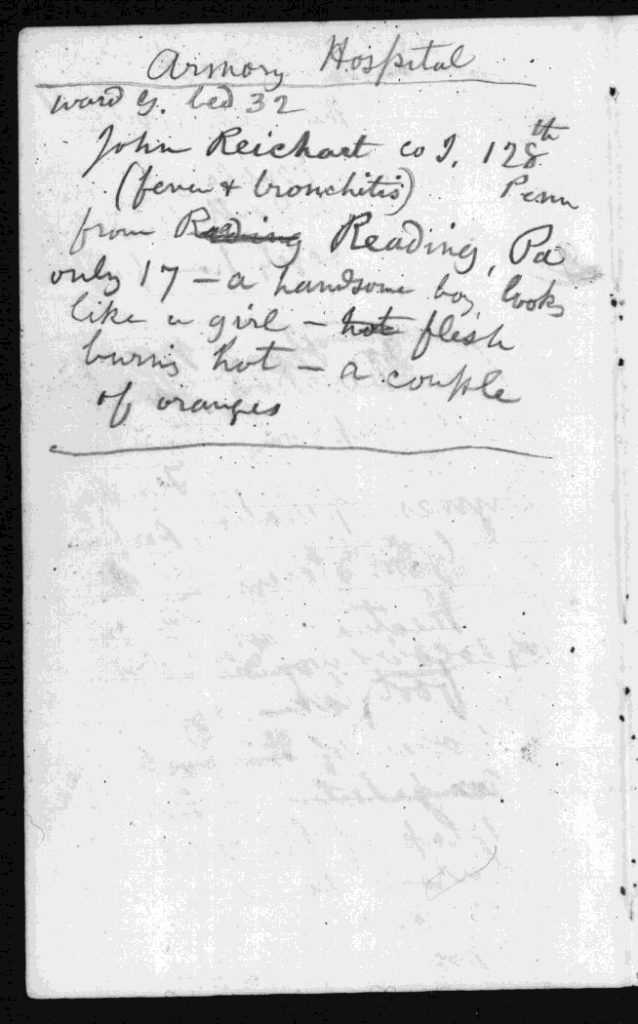 Armory Hospital
ward G. bed 32
John Reichart co I. 128th
(fever & bronchitis) Penn
from Reading Reading, Pa
only 17 – a handsome boy, looks
like a girl – hot flesh
burning hot – a couple
of oranges